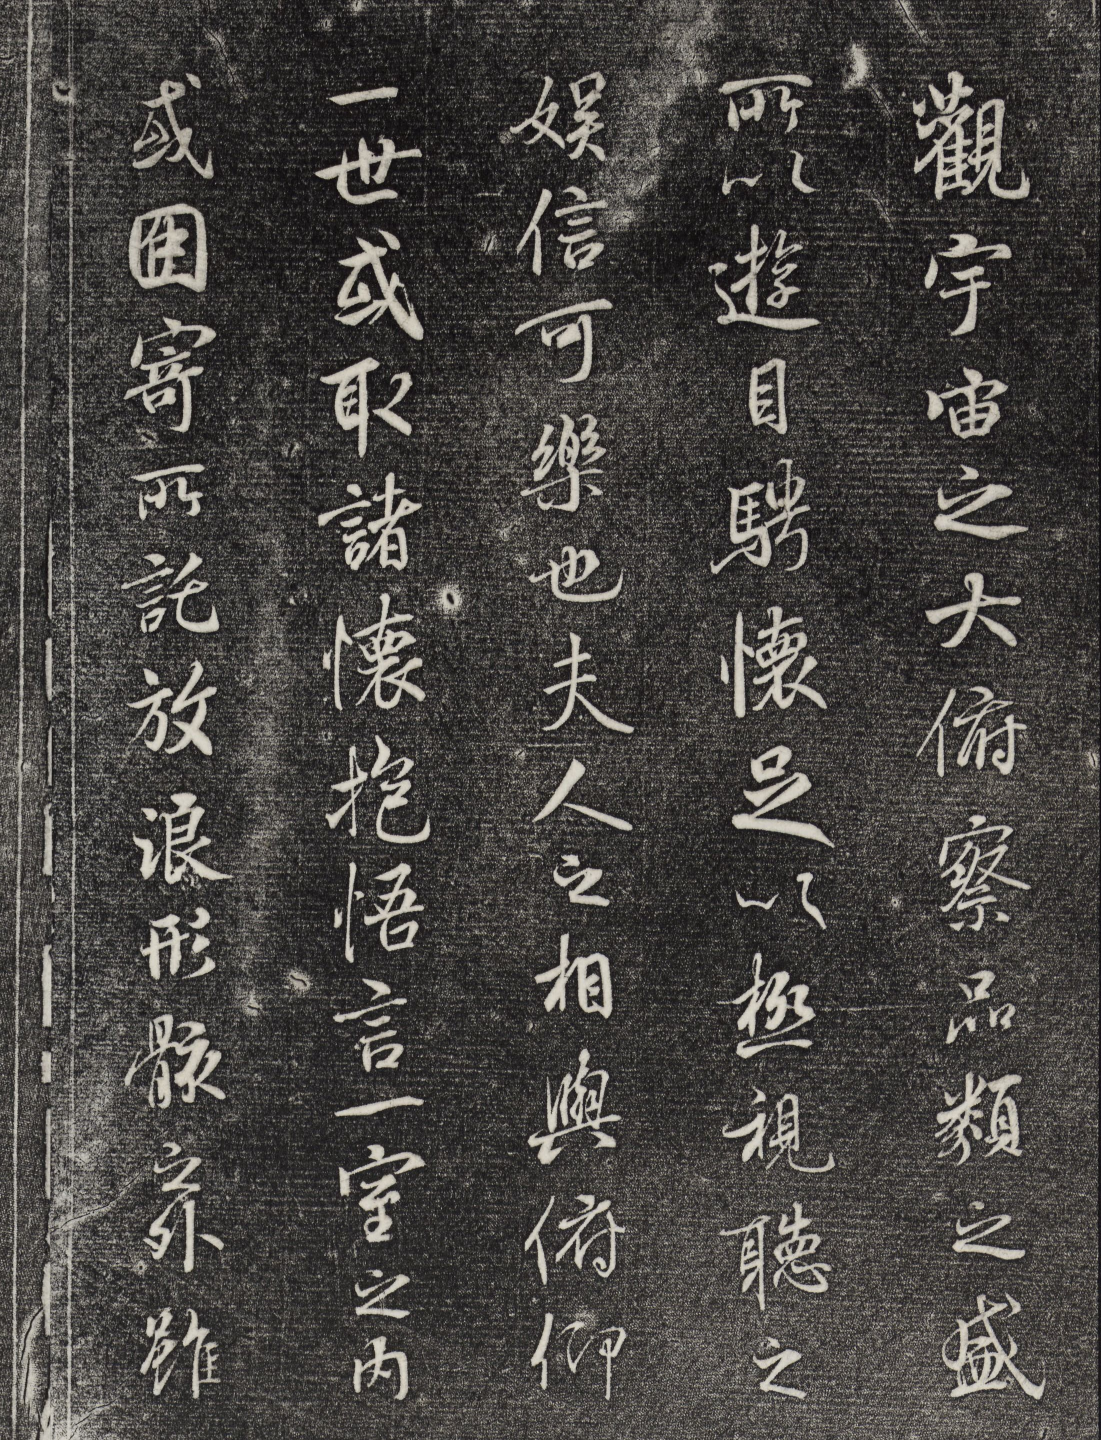 觀宇宙之大俯察品類之盛
所以遊目騁懷足以極視聽之
娛信可樂也夫人之相與俯仰
一世或取諸懷抱悟言一室之內
或因寄所託放浪形骸之外雖